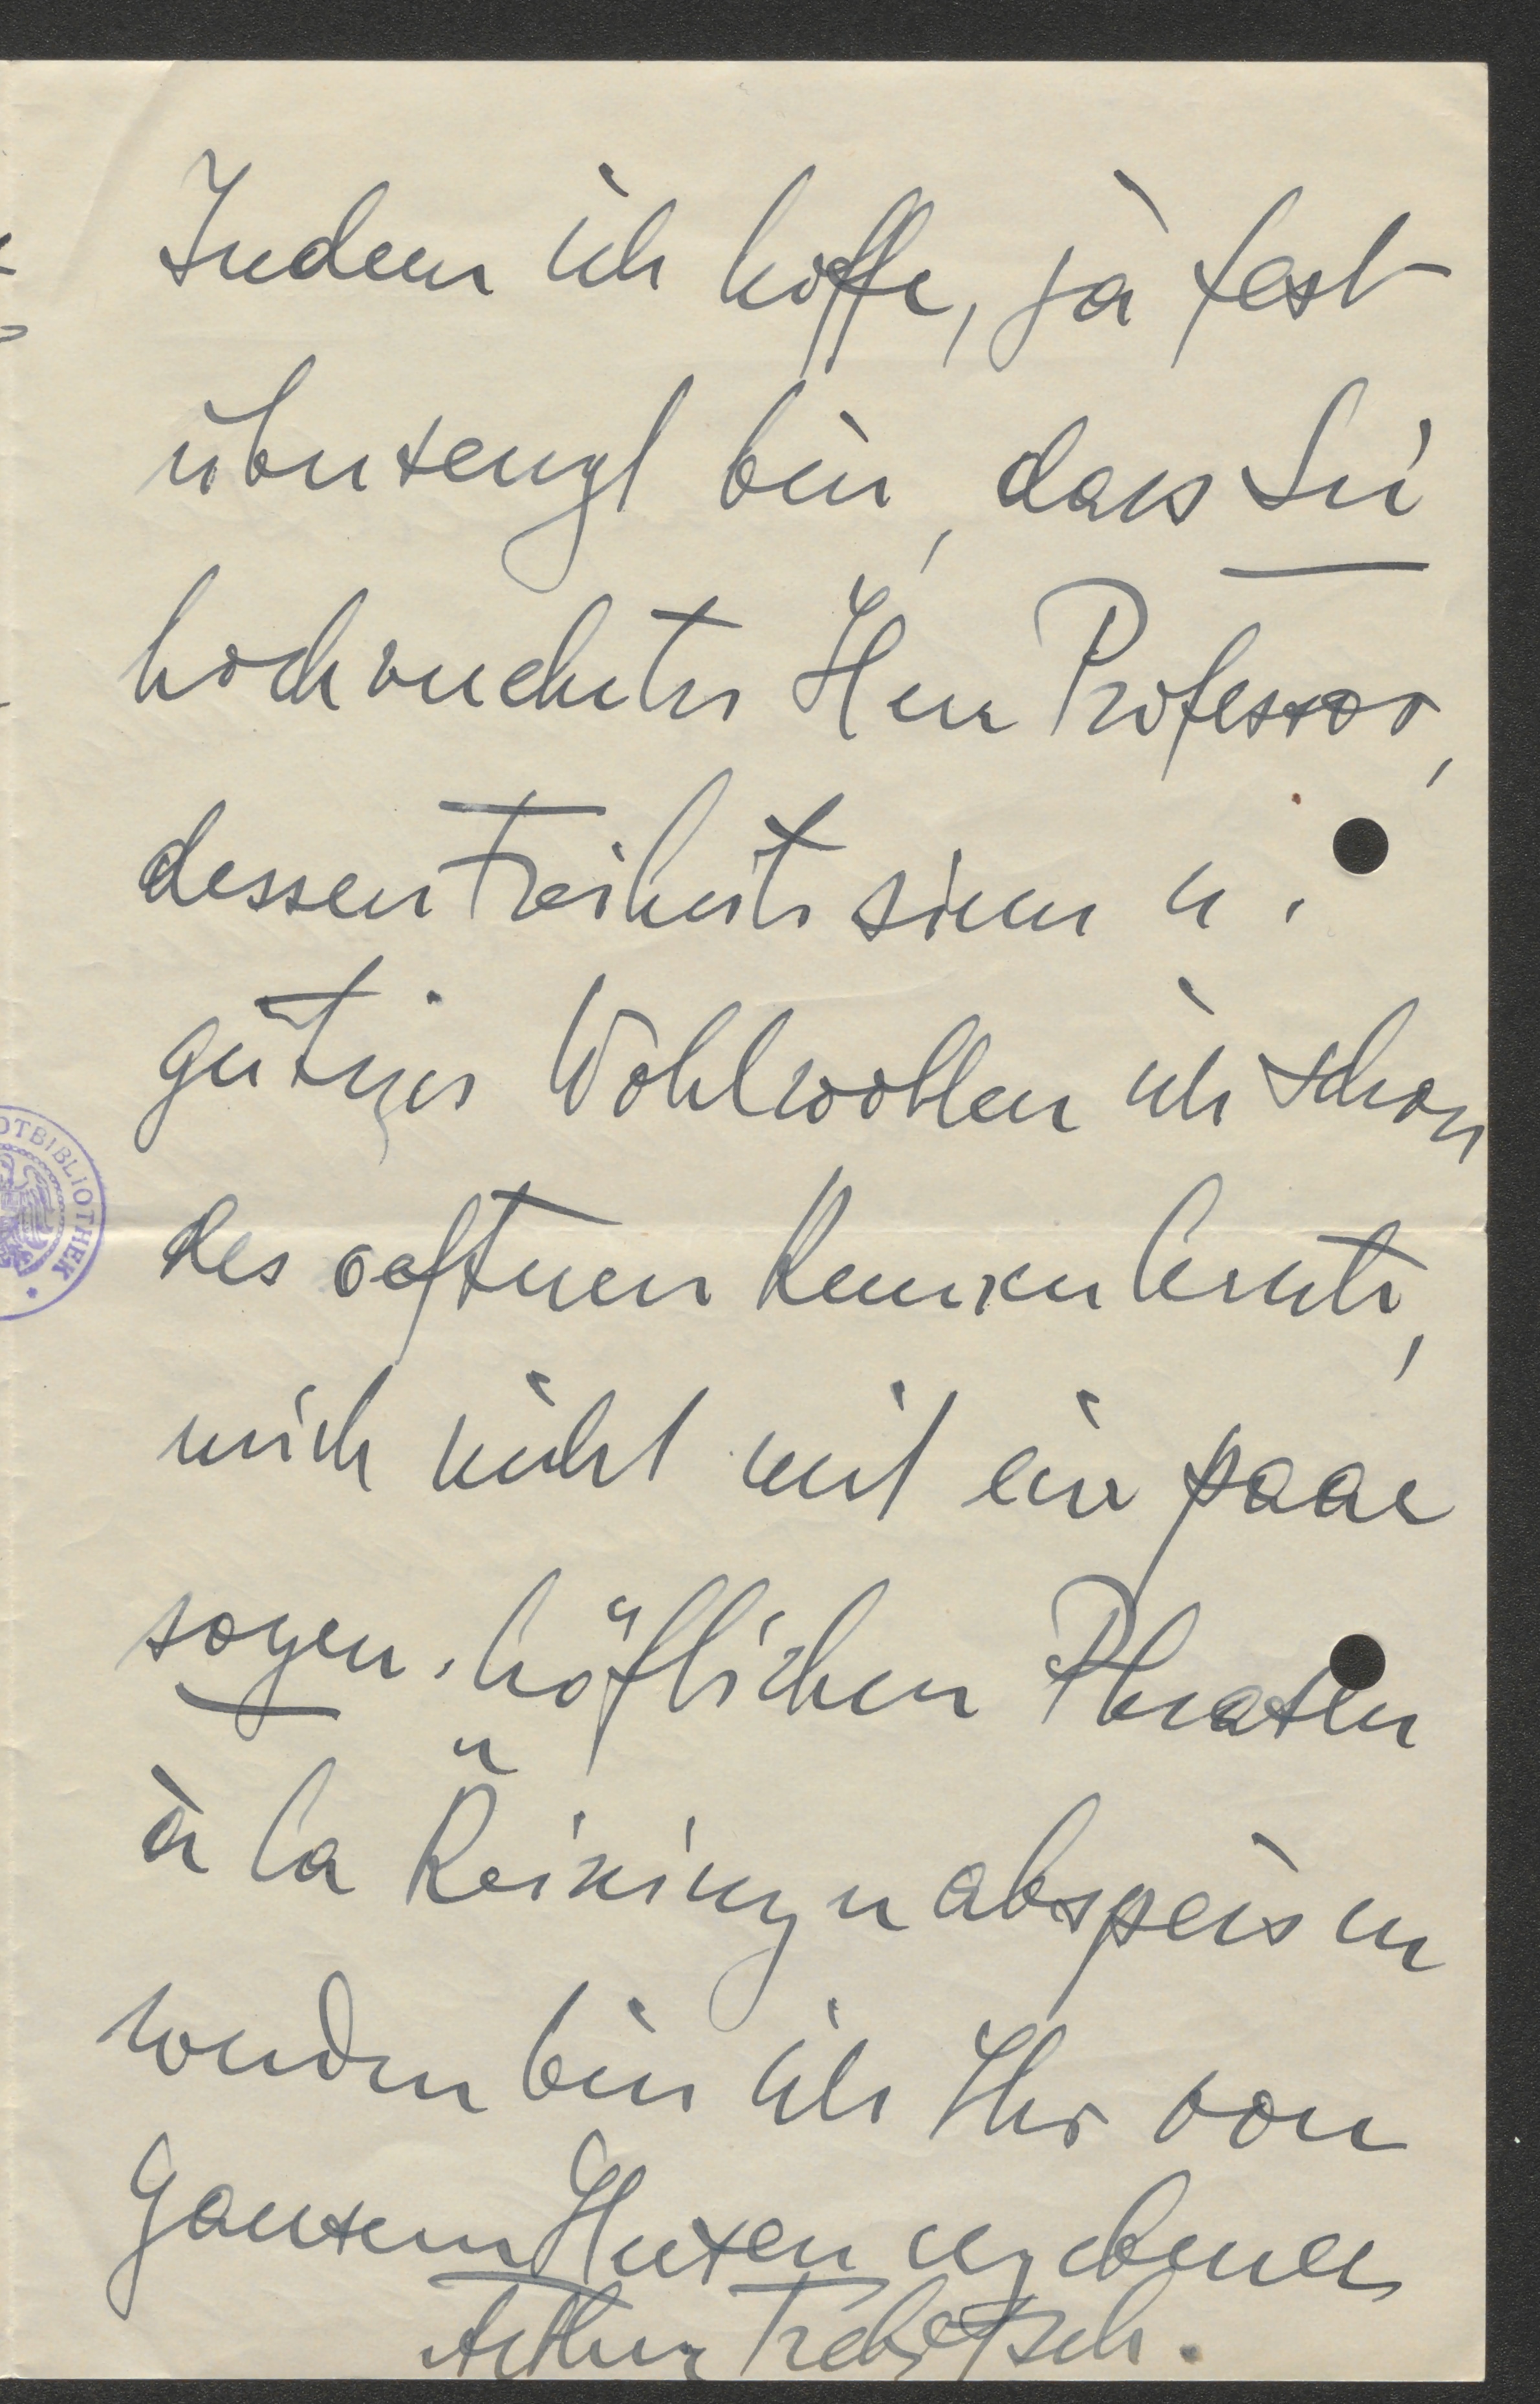 Indem ich hoffe, ja fest
überzeugt bin, dass Sie
hochverehrter Herr Professor,
dessen Freiheitssinn u.
gütiges Wohlwollen ich schon
des oefteren kennen lernte,
mich nicht mit ein paar
sogen. höflichen Phrasen
à la Reininger abspeisen
werden bin ich Ihr von
ganzem Herzen ergebener
Arthur Trebitsch.
OTBIBLIOTHEK